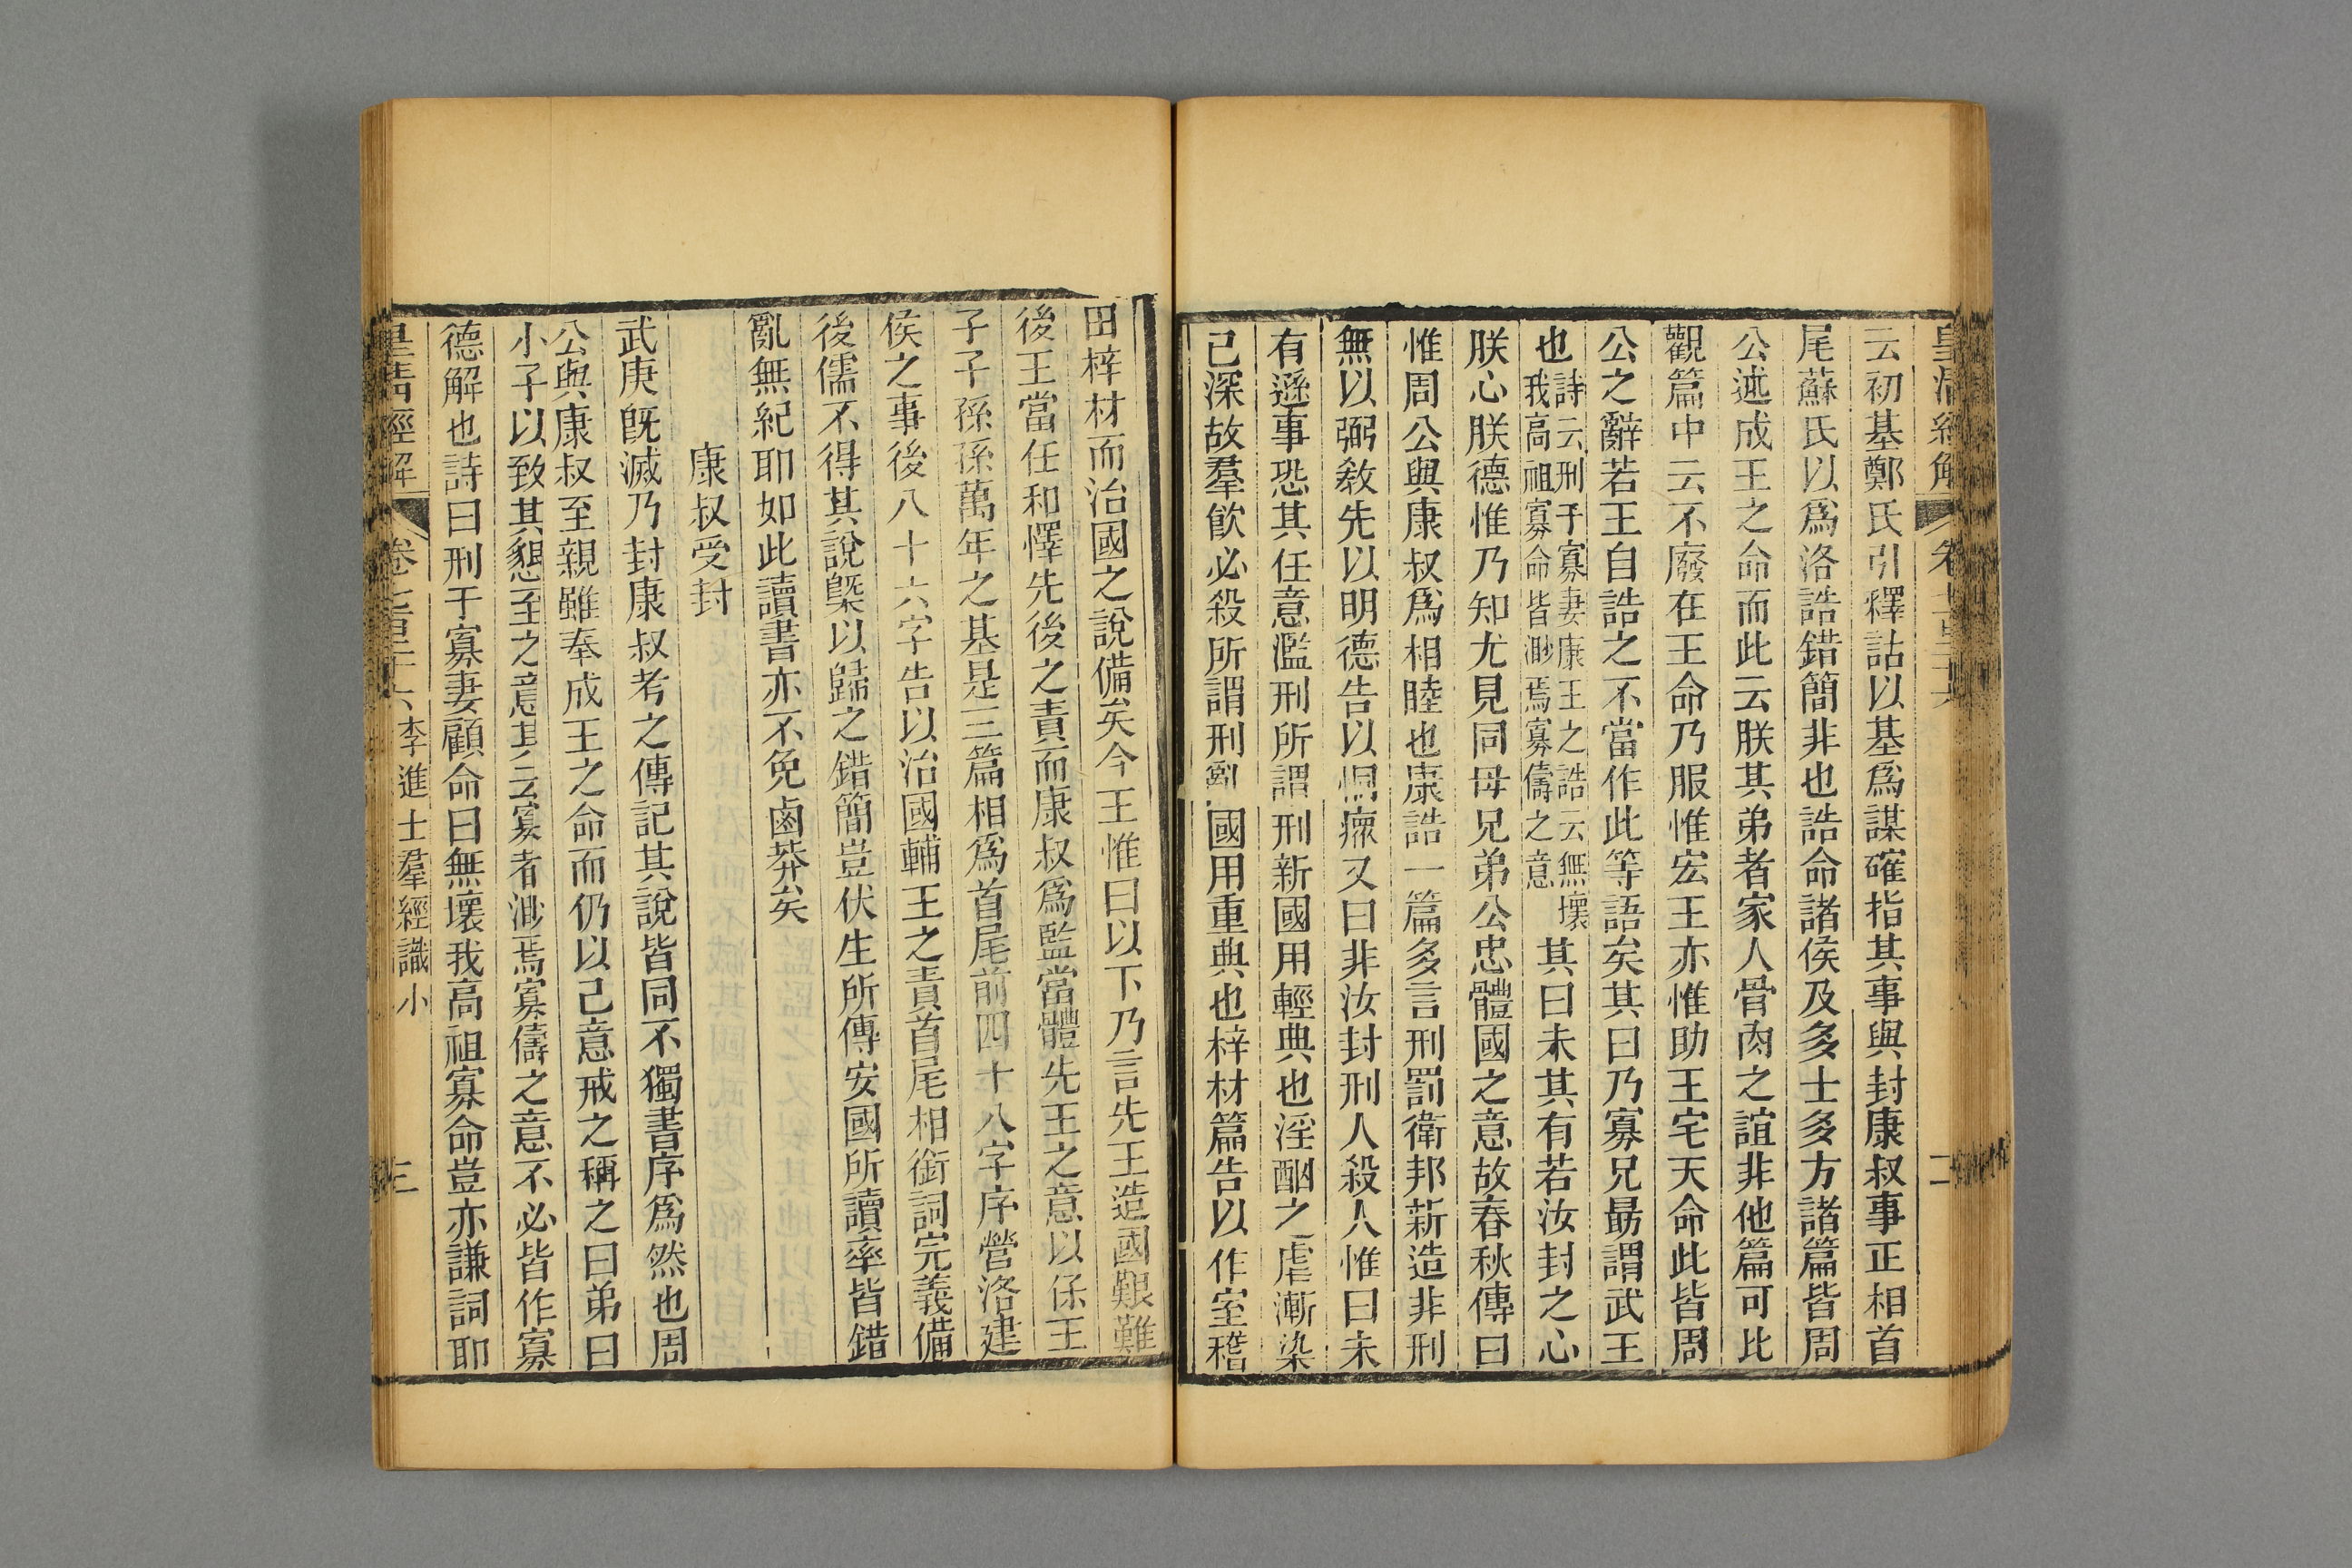 皇清經解 卷七百二十六 二
云初基鄭氏引釋詁以基爲謀確指其事與封康叔事正相首
尾蘇氏以爲洛誥錯簡非也誥命諸侯及多士多方諸篇皆周
公述成王之命而此云朕其弟者家人骨肉之誼非他篇可比
觀篇中云不廢在王命乃服惟宏王亦惟助王宅天命此皆周
公之辭若王自誥之不當作此等語矣其曰乃寡兄勗謂武王
也詩云刑于寡妻康王之誥云無壞我高祖寡命皆渺焉寡儔之意其曰未其有若汝封之心
朕心朕德惟乃知尤見同母兄弟公忠體國之意故春秋傳曰
惟周公與康叔爲相睦也康誥一篇多言刑罰衛邦新造非刑
無以弼敎先以明德告以恫瘝又曰非汝封刑人殺人惟曰未
有遜事恐其任意濫刑所謂刑新國用輕典也淫酗之虐漸染
已深故羣飮必殺所謂刑亂國用重典也梓材篇告以作室稽
田梓材而治國之說備矣今王惟曰以下乃言先王造國艱難
後王當任和懌先後之責而康叔爲監當體先王之意以保王
子子孫孫萬年之基是三篇相爲首尾前四十八字序營洛建
侯之事後八十六字告以治國輔王之責首尾相銜詞完義備
後儒不得其說槩以歸之錯簡豈伏生所傳安國所讀率皆錯
亂無紀耶如此讀書亦不免鹵莽矣
康叔受封
武庚旣滅乃封康叔考之傳記其說皆同不獨書序爲然也周
公與康叔至親雖奉成王之命而仍以己意戒之稱之曰弟曰
小子以致其懇至之意其云寡者渺焉寡儔之意不必皆作寡
德解也詩曰刑于寡妻顧命曰無壞我高祖寡命豈亦謙詞耶
皇清經解 卷七百二十六 李進士羣經識小 三